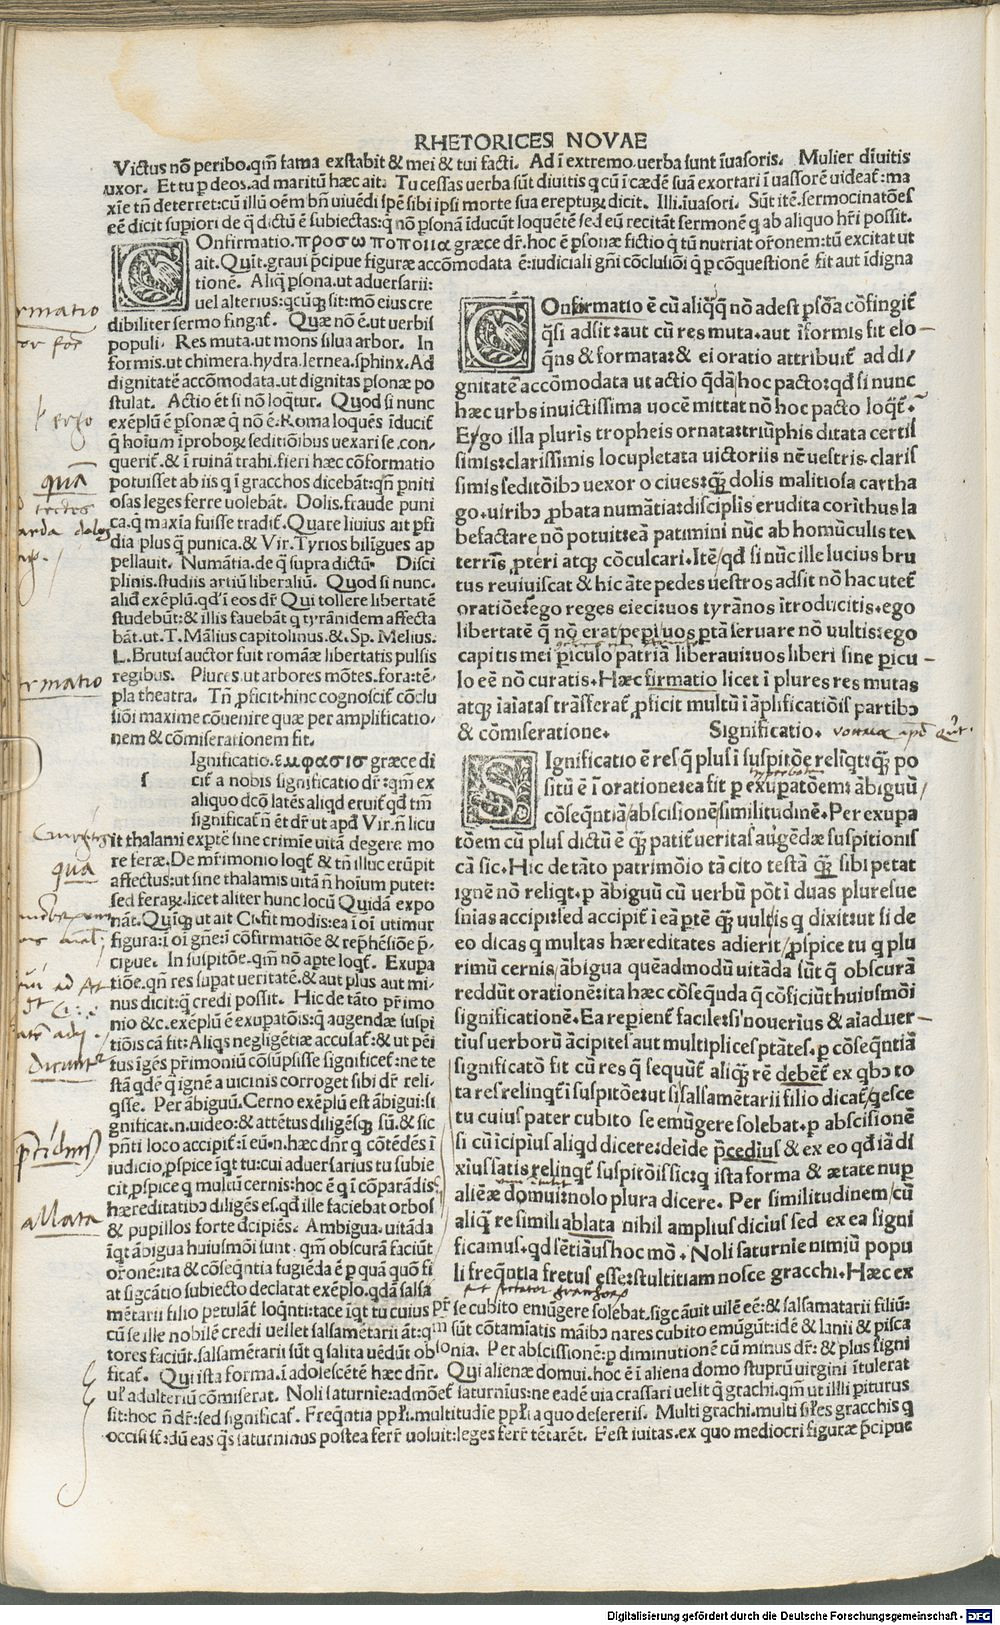 RHETORICES NOVAE
Victus nõ peribo.qm̃ fama exstabit & mei & tui facti. Ad ĩ extremo uerba sunt ĩuasoris. Mulier diuitis
uxor. Et tu p deos.ad maritũ hæc ait. Tu cessas uerba sũt diuitis q cũ ĩ cædẽ suã exortari ĩuassorẽ uideat̃:ma
xĩe tñ deterret:cũ illũ oẽm bñ uiuẽdi spẽ sibi ipsi morte sua ereptuꝝ dicit. Illi.ĩuasori. Sũt itẽ sermocinatões
eẽ dicit supiori de q̃ dictũ ẽ subiectas:q̃ nõ psonã ĩducũt loquẽtẽ sed eũ recitãt sermonẽ q ab aliquo hr̃i possit.
COnfirmatio.προσωποποιια græce dr̃.hoc ẽ psonæ fictio q tũ nutriat or̃onem:tũ excitat ut
ait.Quĩt.graui p̃cipue figuræ accõmodata ẽ:iudiciali gñi cõclusiõi q̃ p cõquestionẽ fit aut ĩdigna
tionẽ. Aliq̃ psona.ut aduersarii:
uel alterius:qcũqꝫ sit:mõ eius cre
dibiliter sermo fingat̃. Quæ nõ ẽ.ut uerbis
populi. Res muta.ut mons silua arbor. In
formis.ut chimera.hydra.lernea.sphinx.Ad
dignitatẽ accõmodata.ut dignitas psonæ po
stulat. Actio ẽt si nõ loq̃tur. Quod si nunc
exẽplũ ẽ psonæ q̃ nõ ẽ.Roma loquẽs ĩducit̃
q̃ hoĩum ĩproboꝝ seditiõibus uexari se.con-
querit̃.& ĩ ruinã trahi.fieri hæc cõformatio
potuisset ab iis q ĩ gracchos dicebãt:qm̃ pniti
osas leges ferre uolebãt. Dolis.fraude puni
ca.q̃ maxĩa fuisse tradit̃.Quare liuius ait pfi
dia plus q̃ punica.& Vir.Tyrios bilĩgues ap
pellauit. Numãtia.de q̃ supra dictũ. Disci
plinis.studiis artiũ liberaliũ. Quod si nunc.
aliđ exẽplũ.qđ ĩ eos dr̃ Qui tollere libertatẽ
studebũt:& illis fauebãt q tyrãnidem affecta
bãt.ut.T.Mãlius capitolinus.&.Sp.Melius.
L.Brutus auctor fuit romãæ libertatis pulsis
regibus. Plures.ut arbores mõtes.fora:tẽ-
pla theatra. Tñ pficit.hinc cognoscit̃ cõclu
siõi maxime cõuenire quæ per amplificatio-
nem & cõmiserationem fit.
s Ignificatio.εμφασισ græce di
cit̃ a nobis significatio dr̃:qm̃ ex
aliquo dcõ latẽs aliqđ eruit̃ qđ tm̃
significat̃ ñ ẽt dr̃ ut apđ Vir.ñ licu
it thalami expte sine crimĩe uitã degere mo
re feræ.De mr̃imonio loqt̃ & tñ illuc erũpit
affectus:ut sine thalamis uitã ñ hoĩum putet:
sed feraꝝ.licet aliter hunc locũ Quidã expo
nãt.Quĩqꝫ ut ait Ci.fit modis:ea ĩ oĩ utimur
figura:ĩ oĩ gñe:ĩ cõfirmatiõe & rep̃hẽsiõe p̃-
cipue. In suspitõe.qm̃ nõ apte loqt̃. Exupa
tiõe.qñ res supat ueritatẽ.& aut plus aut mi-
nus dicit:q̃ credi possit. Hic de tãto pr̃imo
nio &c.exẽplũ ẽ exupatõis:q̃ augendæ suspi
tiõis cã fit:Aliqs negligẽtiæ accusat̃:& ut pẽi
tus ĩgẽs pr̃imoniũ cõsũpsisse significet̃:ne te
stã qdẽ q̃ ignẽ a uicinis corroget sibi dr̃ reli-
qsse. Per ãbiguũ.Cerno exẽplũ est ãbigui:si
gnificat.n.uideo:& attẽtus diligẽsqꝫ sũ.& sic
pñti loco accipit̃:ĩ eũ.n.hæc dñr q cõtẽdẽs ĩ
iudicio.pspice ĩqt tu:cui aduersarius tu subie
cit.pspice q multũ cernis:hoc ẽ q ĩ cõparãdis
hæreditatibꝰ diligẽs es.qđ ille faciebat orbos
& pupillos forte d̃cipiẽs. Ambigua.uitãda
ĩqt ãbigua huiusmõi sunt.qm̃ obscurã faciũt
or̃onẽ:ita & cõseqñtia fugiẽda ẽ p quã quõ fi
at sigcãtio subiecto declarat exẽplo.qdã salsa
mẽtarii filio petulãt̃ loqñti:tace ĩqt tu cuius
COnfirmatio ẽ cũ aliq̃q nõ adest psõa cõfingit̃
q̃si adsit:aut cũ res muta.aut ĩformis fit elo-
qñs & formata:& ei oratio attribuit̃ ad di/
gnitatẽ accõmodata ut actio qdã/hoc pacto:qđ si nunc
hæc urbs inuictissima uocẽ mittat nõ hoc pacto loqt̃.
Ergo illa pluris tropheis ornata:triũphis ditata certis
simis:clarissimis locupletata uictoriis nẽ uestris.claris
simis seditõibꝰ uexor o ciues:qꝫ dolis malitiosa cartha
go.uiribꝰ pbata numãtia:disciplis erudita corĩthus la
befactare nõ potuit:eã patimini nũc ab homũculis te-
terrĩs pteri atqꝫ cõculcari.Itẽ/qđ si nũc ille lucius bru
tus reuiuiscat & hic ãte pedes uestros adsit nõ hac utet̃
oratiõe:ego reges eieci:uos tyrãnos ĩtroducitis.ego
libertatẽ q̃ nõ erat/pepi/uos ptã seruare nõ uultis:ego
capitis mei piculo patriã liberaui:uos liberi sine picu-
lo eẽ nõ curatis.Hæc firmatio licet ĩ plures res mutas
atqꝫ ĩaĩatas trãsferat̃ pficit multũ ĩ ãplificatiõis partibꝰ
& cõmiseratione. Significatio.
SIgnificatio ẽ res q̃ plus ĩ suspitõe reliqt:qꝫ po
situ ẽ ĩ oratione:ea fit p exupatõem:ãbiguũ/
cõseqñtiã/abscisionẽ/similitudinẽ.Per exupa
tõem cũ plus dictũ ẽ qꝫ patit̃ ueritas augẽdæ suspitionis
cã sic.Hic de tãto patrimõio tã cito testã qꝫ sibi petat
ignẽ nõ reliqt.p ãbiguũ cũ uerbũ põt ĩ duas pluresue
sñias accipi:sed accipit̃ ĩ eã ptẽ qꝫ uultis q dixit:ut si de
eo dicas q multas hæreditates adierit/pspice tu q plu
rimũ cernis/ãbigua quẽadmodũ uitãda sũt q̃ obscurã
reddũt orationẽ:ita hæc cõseqñda q̃ cõficiũt huiusmõi
significationẽ.Ea repient̃ facile:si nouerius & aĩaduer-
tius uerborũ ãcipites aut multiplices ptãtes.p cõseqñtiã
significatõ fit cũ res q̃ sequũt̃ aliquã rẽ debẽt ex qbꝰ to
ta res relinqt̃ ĩ suspitõe:ut si salsamẽtarii filio dicat/qesce
tu cuius pater cubito se emũgere solebat.p abscisionẽ
si cũ ĩcipius aliqđ dicere:deĩde p̃cedius & ex eo qđ iã di
xius satis relinqt̃ suspitõis:sic:q ista forma & ætate nup
alienæ domui:nolo plura dicere. Per similitudinem/cũ
aliq̃ re simili ablata nihil amplius dicius sed ex ea signi
ficamus.qđ sẽtiãus hoc mõ. Noli saturnie nimiũ popu
li freqñtia fretus esse:stultitiam nosce gracchi.Hæc ex
pr̃ se cubito emũgere solebat.sigcãuit uilẽ eẽ:& salsamatarii filiũ:
cũ se ille nobilẽ credi uellet salsamẽtarii ãt:qm sũt cõtamĩatis mãibꝰ nares cubito emũgũt:idẽ & lanii & pisca
tores faciũt.salsamẽrarii sũt q salita uẽdũt obsonia. Per abscissionẽ:p diminutionẽ cũ minus dr̃:& plus signi
ficat̃. Qui ista forma.ĩ adolescẽtẽ hæc dñr. Qui alienæ domui.hoc ẽ ĩ aliena domo stuprũ uirgini ĩtulerat
ul̃ adulteriũ cõmiserat. Noli saturnie:admõet̃ saturnius:ne eadẽ uia crassari uelit q̃ grachi.qm̃ ut illi piturus
sit:hoc ñ dr̃:sed significat̃. Freqñtia ppl̃i.multitudĩe ppl̃i a quo desereris. Multi grachi.multi sil̃es gracchis q
occisi st̃:dũ eas q̃s saturninus postea ferr̃ uoluit:leges ferr̃ tẽtarẽt. Eest iuitas.ex quo mediocri figuræ p̃cipue
rmatio
ergo
quã
rmatio
qua
dicuntr
allata
Digitalisierung gefördert durch die Deutsche Forschungsgemeinschaft - DFG